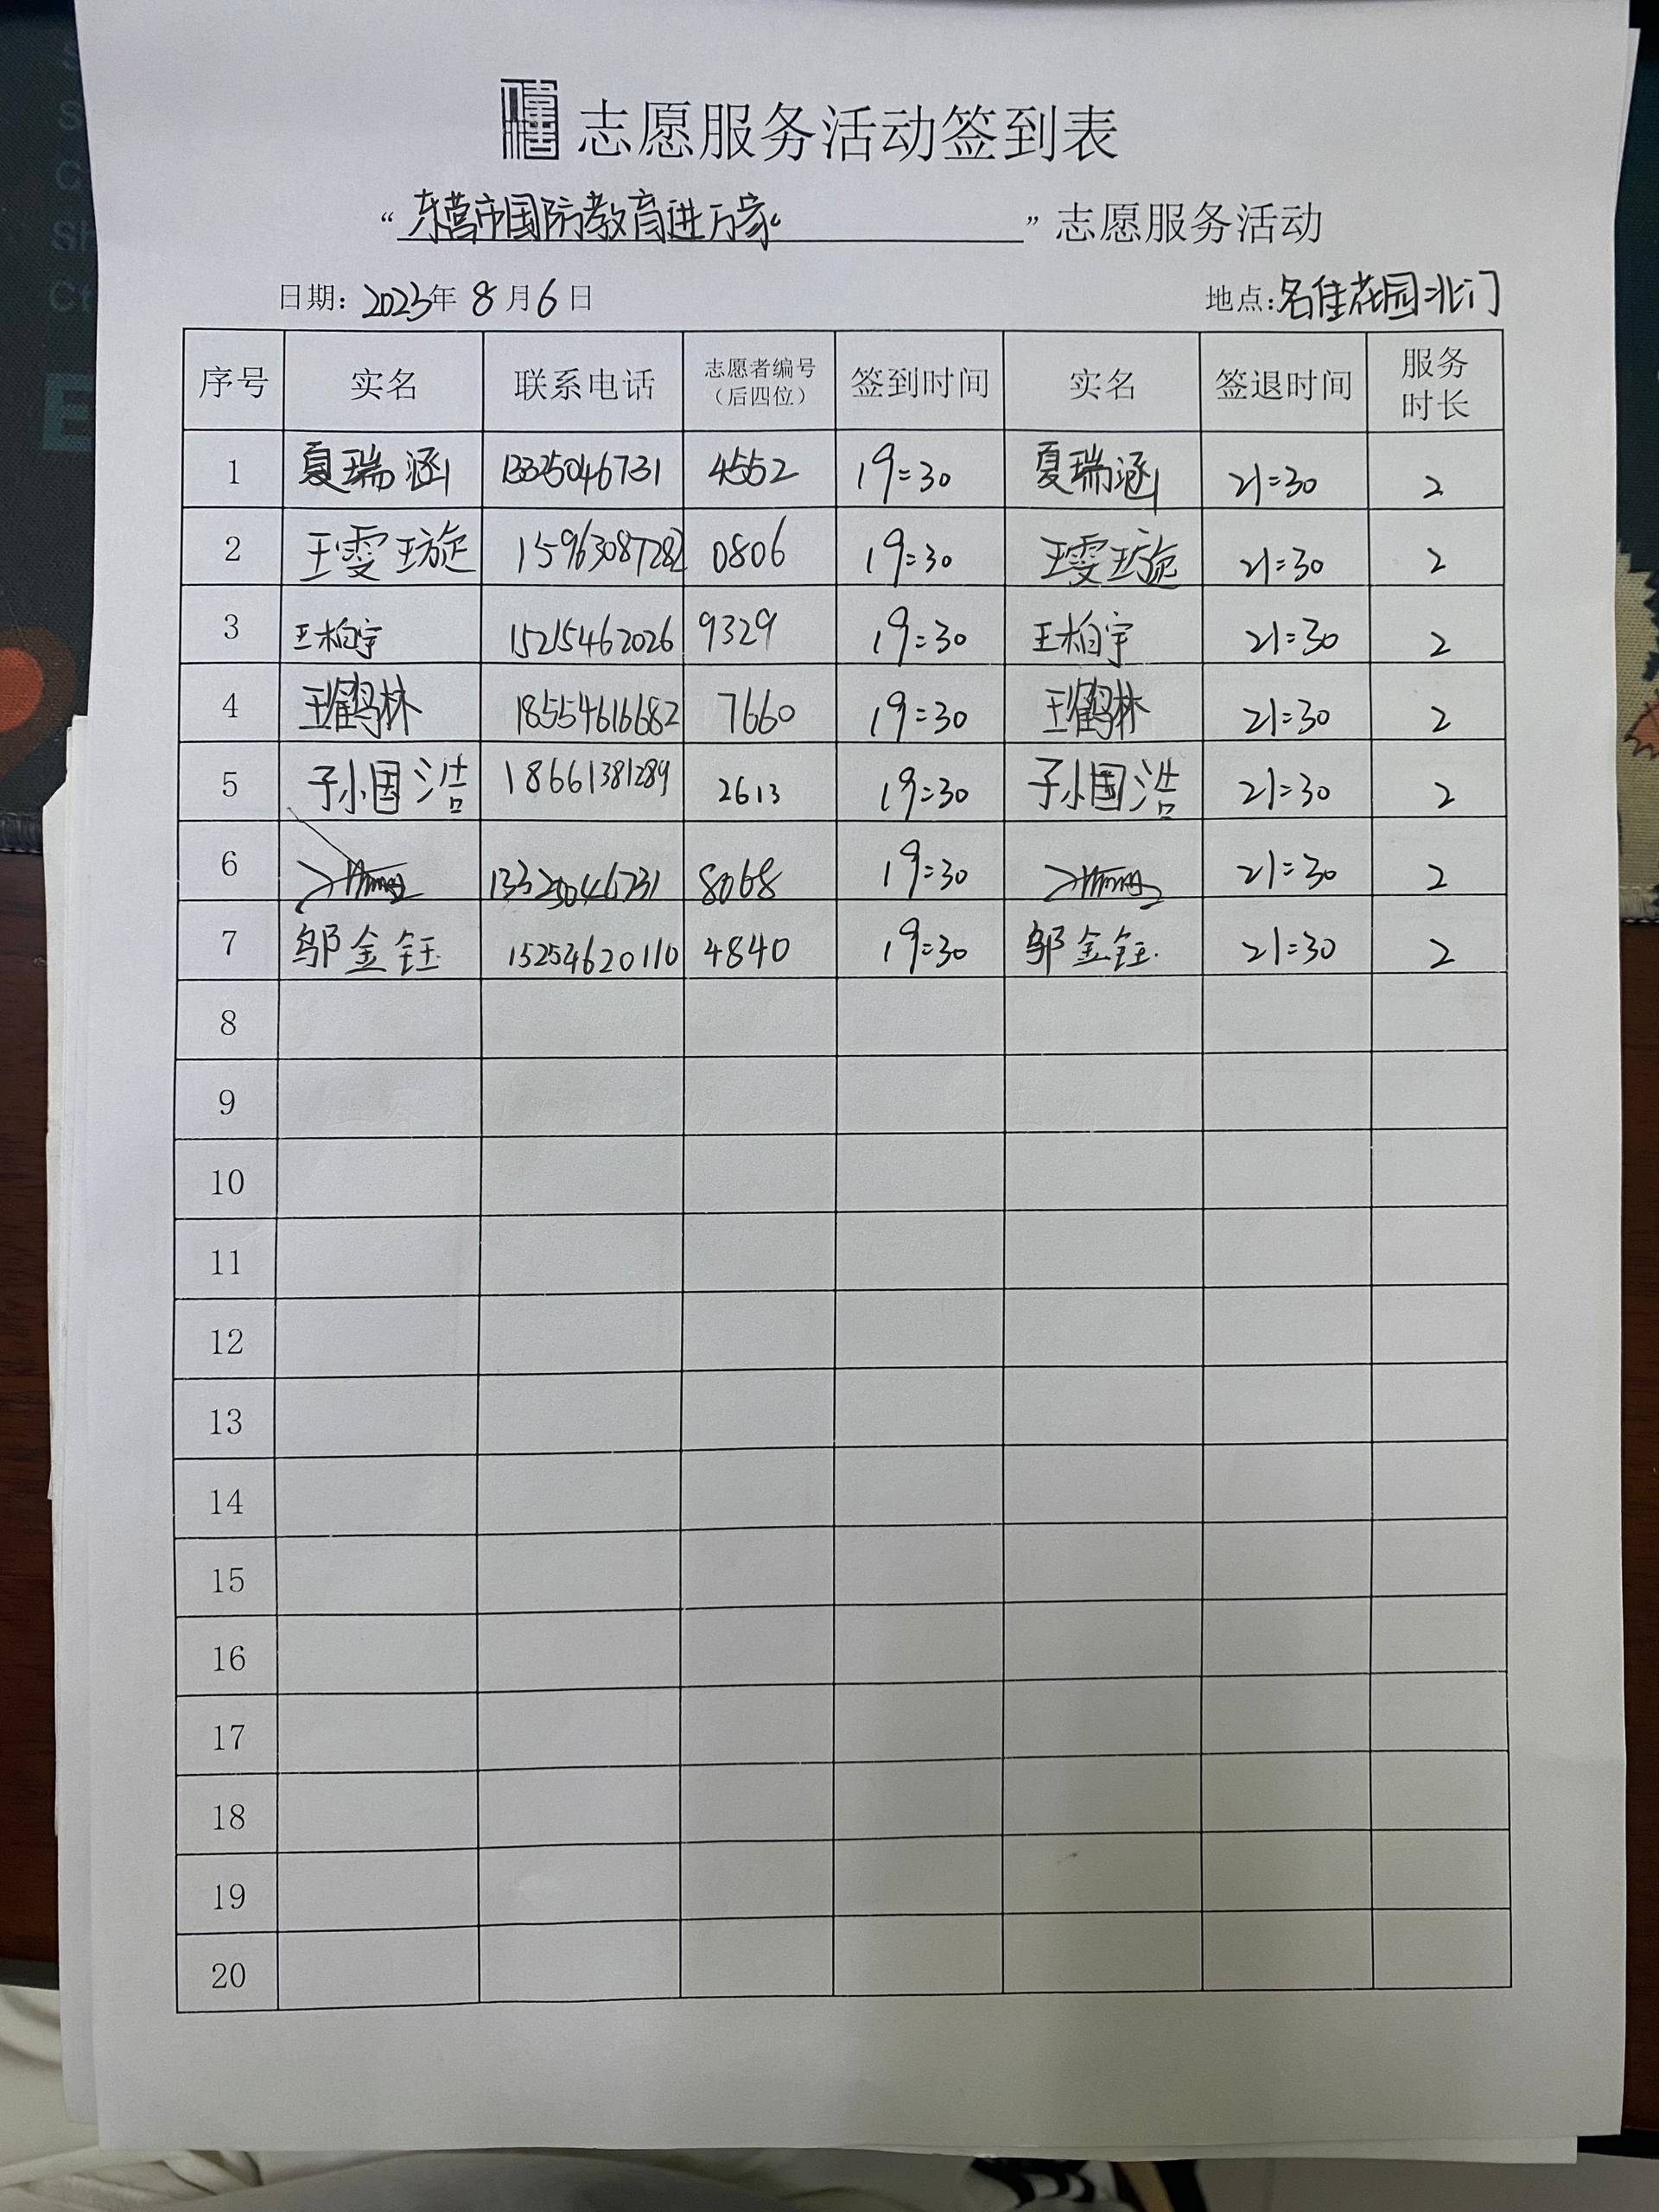 志愿服务活动签到表
“东营市国防教育进万家“ ”志愿服务活动
日期: 2023年 8月6日 地点:名佳花园北门
序号 实名 联系电话 志愿者编号（后四位） 签到时间 实名 签退时间 服务时长
1 夏瑞涵 13325046731 4552 19:30 夏瑞涵 21:30 2
2 王雯璇 15963087282 0806 19:30 王雯璇 21:30 2
3 王柏宇 15215462026 9329 19:30 王柏宇 21:30 2
4 王鹤林 18554616682 7660 19:30 王鹤林 21:30 2
5 孙国浩 18661381289 2613 19:30 孙国浩 21:30 2
6 13325046731 8068 19:30 21:30 2
7 邬金钰 15254620110 4840 19:30 邬金钰 21:30 2
8
9
10
11
12
13
14
15
16
17
18
19
20